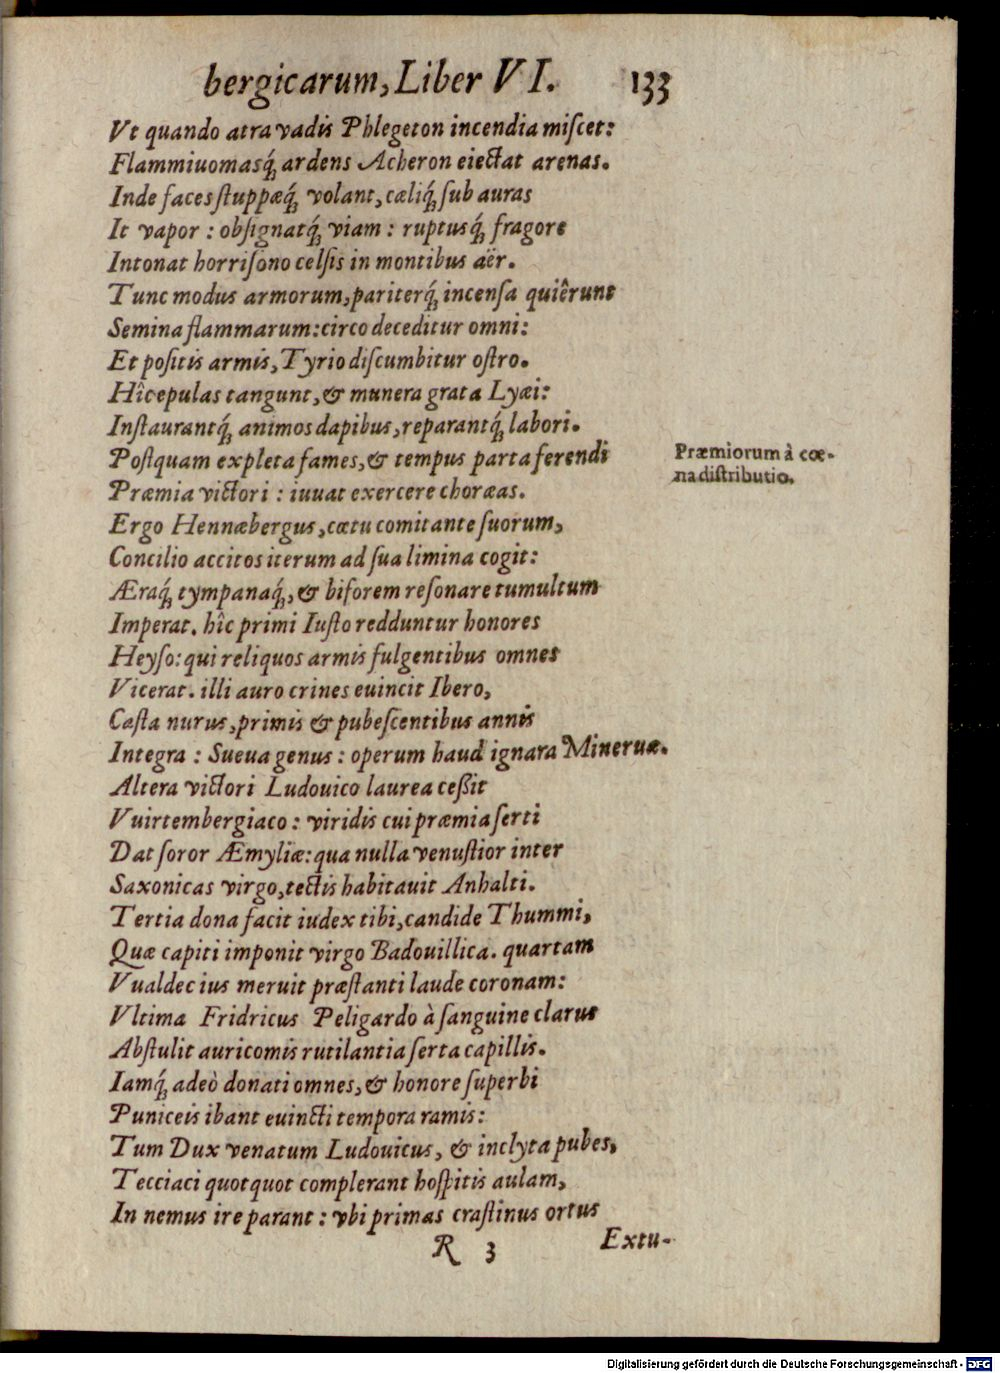 bergicarum, Liber VI. 133
Vt quando atra vadis Phlegeton incendia miſcet:
Flammiuomasq́ꝫ ardens Acheron eiectat arenas.
Inde faces ſtuppæq́ꝫ volant, cæliq́ꝫ ſub auras
It vapor: obſignatq́ꝫ viam: ruptusq́ꝫ fragore
Intonat horriſono celſis in montibus aër.
Tunc modus armorum, pariterq́ꝫ incenſa quiêrunt
Semina flammarum: circo deceditur omni:
Et poſitis armis, Tyrio diſcumbitur oſtro.
Hîc epulas tangunt, & munera grata Lyæi:
Inſtaurantq́ꝫ animos dapibus, reparantq́ꝫ labori.
Poſtquam expleta fames, & tempus parta ferendi
Præmiorum à cœ-
na diſtributio.
Præmia victori: iuuat exercere choræas.
Ergo Hennæbergus, cœtu comitante ſuorum,
Concilio accitos iterum ad ſua limina cogit:
Æraq́ꝫ tympanaq́ꝫ, & biforem reſonare tumultum
Imperat. hîc primi Iuſto redduntur honores
Heyſo: qui reliquos armis fulgentibus omnes
Vicerat. illi auro crines euincit Ibero,
Caſta nurus, primis & pubeſcentibus annis
Integra: Sueua genus: operum haud ignara Mineruæ.
Altera victori Ludouico laurea ceßit
Vuirtembergiaco: viridis cui præmia ſerti
Dat ſoror Æmyliæ: qua nulla venuſtior inter
Saxonicas virgo, tectis habitauit Anhalti.
Tertia dona facit iudex tibi, candide Thummi,
Quæ capiti imponit virgo Badouillica. quartam
Vualdecius meruit præſtanti laude coronam:
Vltima Fridricus Peligardo à ſanguine clarus
Abſtulit auricomis rutilantia ſerta capillis.
Iamq́ꝫ adeò donati omnes, & honore ſuperbi
Puniceis ibant euincti tempora ramis:
Tum Dux venatum Ludouicus, & inclyta pubes,
Tecciaci quotquot complerant hoſpitis aulam,
In nemus ire parant: vbi primas craſtinus ortus
R 3 Extu-
Digitalisierung gefördert durch die Deutsche Forschungsgemeinschaft - DFG